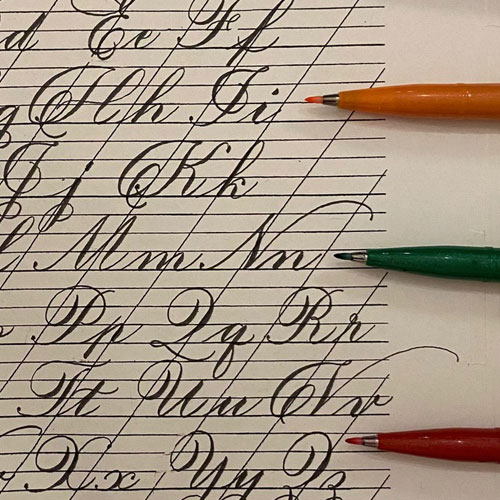 d Ee Ff
g Hh Ii
Jj Kk
l Mm Nn
Pp Qq Rr
Tt Uu Vv
Xx Yy Zz